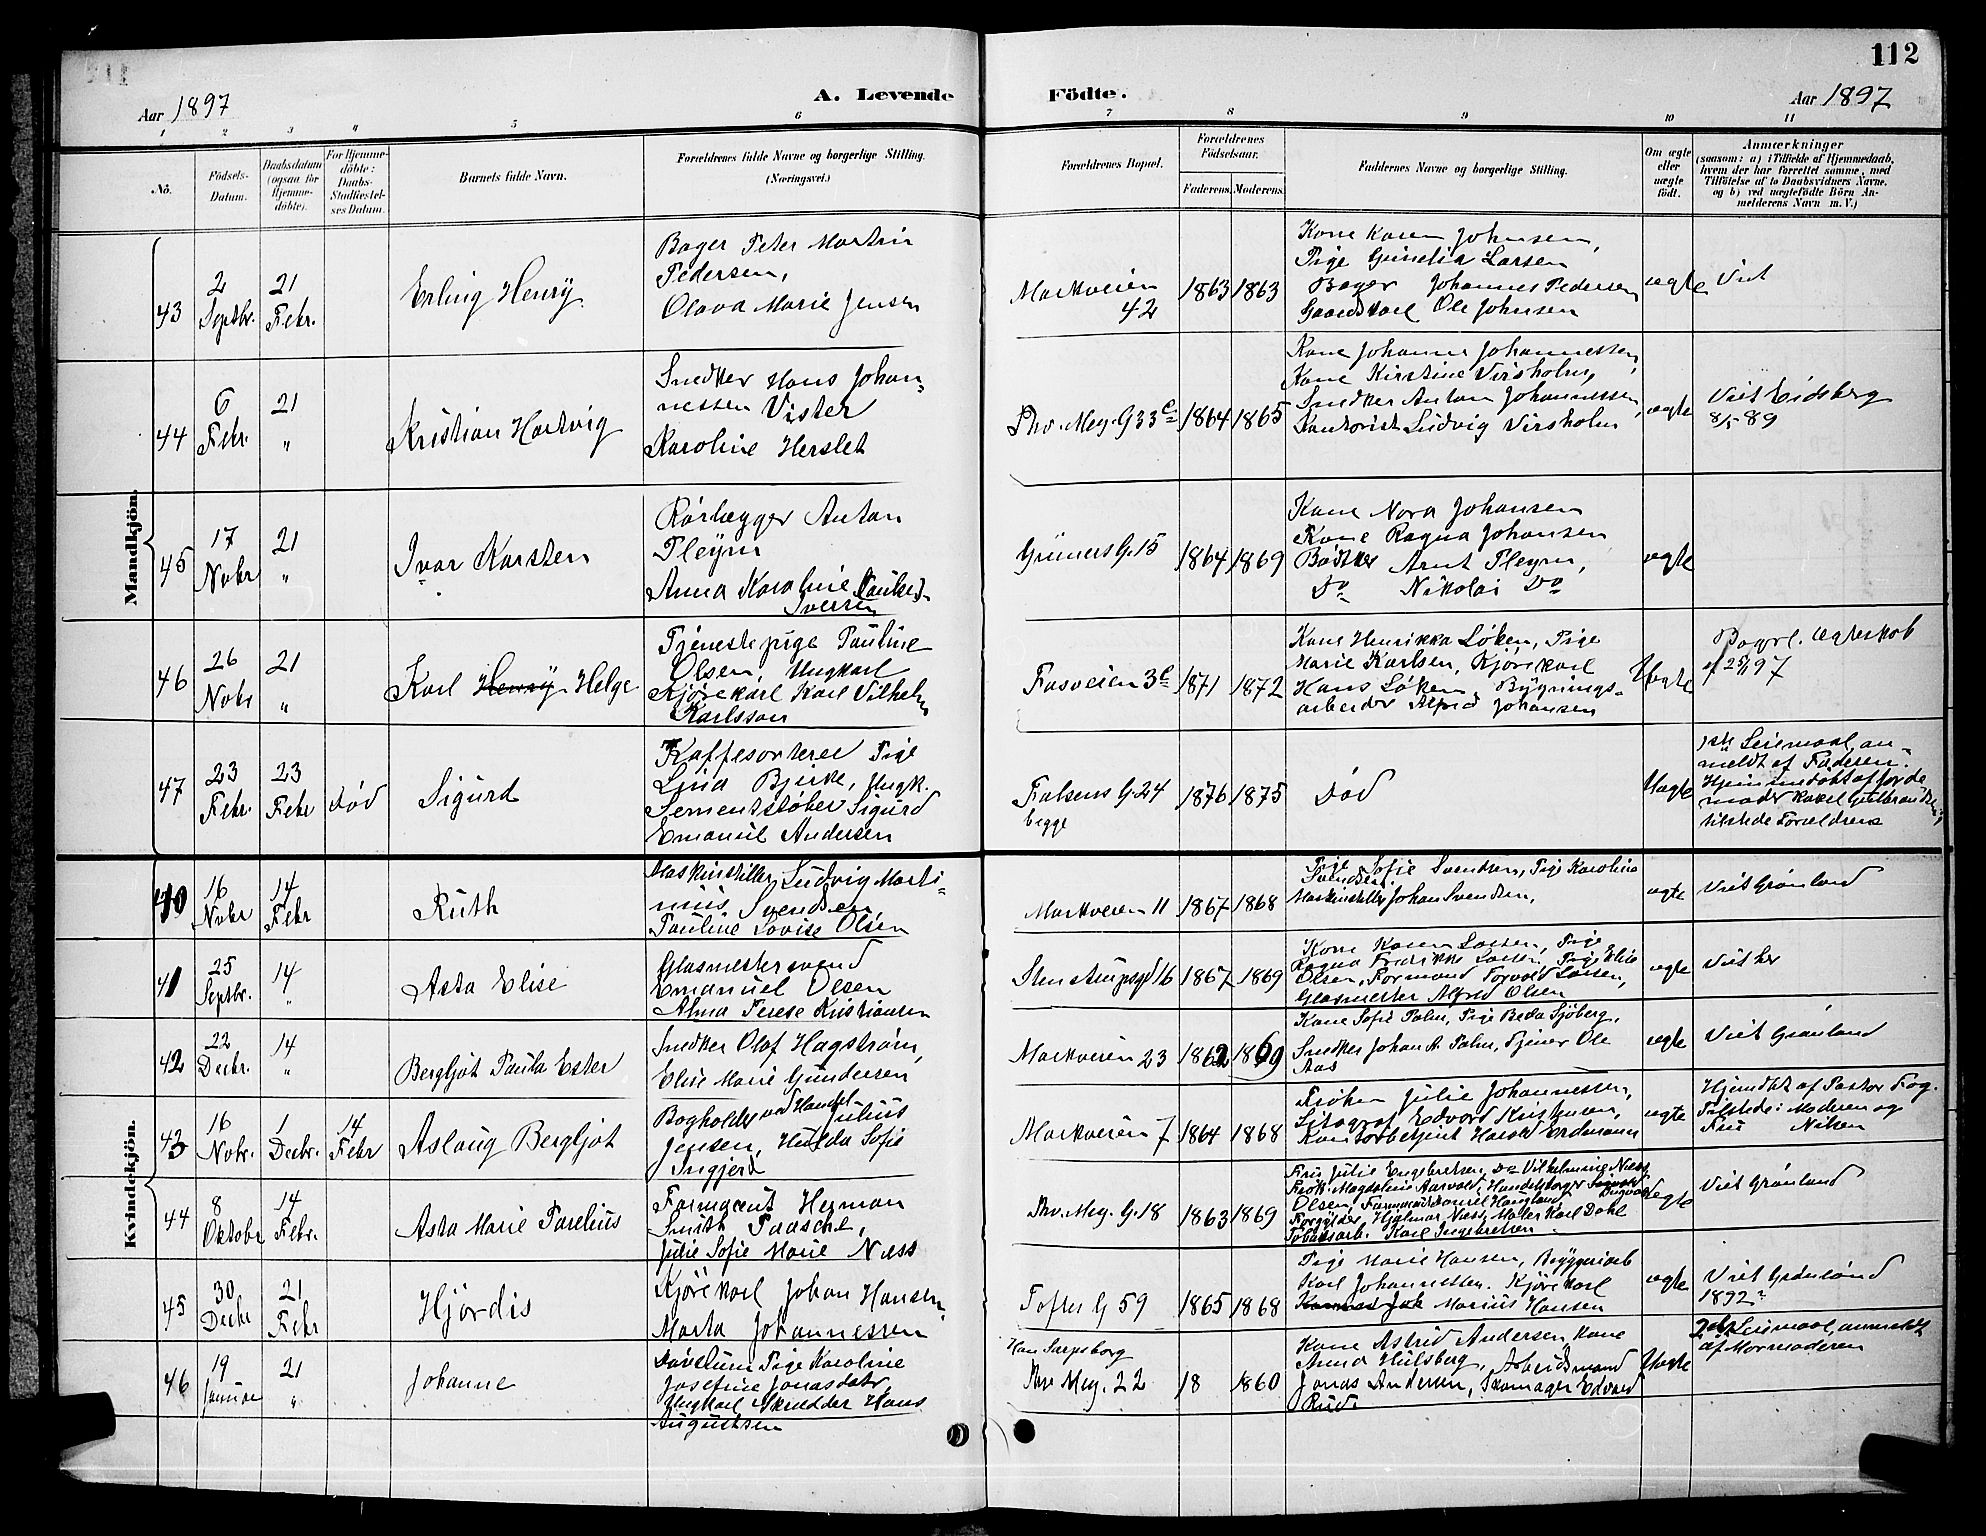 112
Aar 1897
A. Levende Födte.
Aar 1897
1 2 3 4 5 6 7 8 9 10 11
Nö.
Födsels-
Datum.
Daabsdatum
(ogsaa for
Hjemme-
döbte).
For Hjemme-
döbte:
Daabs-
Stadfæstel-
ses Datum.
Barnets fulde Navn.
Forældrenes fulde Navne og borgerlige Stilling.
(Næringsvei.)
Forældrenes Bopæl.
Forældrenes
Födselsaar.
Faderens. Moderens.
Faddernes Navne og borgerlige Stilling.
Om ægte
eller
uægte
födt.
Anmærkninger
(saasom: a) i Tilfælde af Hjemmedaab,
hvem der har forrettet samme, med
Tilföielse af to Daabsvidners Navne,
og b) ved uægtefödte Börn An-
melderens Navn m. V.)
Mandkjön.
43
2
Septbr.
21
Febr.
Erling Henry
Bager Peter Martin
Pedersen,
Olava Marie Jensen
Markveien
42
1863 1863
Kone Karen Johnsen,
Pige Gunelia Larsen
Bager Johannes Pedersen
Gaardskarl Ole Johnsen
ægte
Viet
44
6
Febr.
21
"
Kristian Hartvig
Snedker Hans Johan-
nessen Vister
Karoline Herslet
Thv. Mey. G 33 c
1864 1865
Kone Johanne Johannessen,
Kone Kirstine Virsholm,
Snedker Anton Johannessen,
Kontorist Ludvig Virsholm
ægte
Viet Eidsberg
8/5 89
45
17
Nobr
21
"
Ivar Karsten
Rörlægger Anton
Pleym
Anna Karoline
Iversen
Grüners G. 15
1864 1869
Kone Nora Johansen
Kone Ragna Johansen
Bödtker Arnt Pleym,
Do Nikolai Do
ægte
46
26
Nobr
21
"
Karl Henry Helge
Tjenestepige Pauline
Olsen, Ungkarl
Kjörekarl Karl Vilhelm
Karlsson
Fosveien 3 c
1871 1872
Kone Henrikka Løken, Pige
Marie Karlsen, Kjörekarl
Hans Løken, Bygnings-
arbeider Alfred Johansen
Uægte
Ægteskab
25/1 97
47
23
Febr.
23
Febr
Död
Sigurd
Kaffesorterer Pige
Lina Bjerke, Ungk.
Sementstöber Sigurd
Emanuel Andersen
Falsens G. 24
begge
1876 1875
Död
Uægte
1ste Leiermaal, an-
meldt af Faderen.
Hjemmedöbt af Jorde-
moder
tilstede Forældrene
Kvindekjön.
40
16
Nobr
14
Febr
Ruth
Maskinstiller Ludvig Marti-
nius Svendsen
Pauline Lovise Olsen
Markveien 11
1867 1868
Pige Sofie Svendsen, Pige Karoline
Svendsen
Maskinstiller Johan Svendsen,
ægte
Viet Grönland
41
25
Septbr.
14
"
Asta Elise
Glasmestersvend
Emanuel Olsen
Alma Terese Kristiansen
Stenstrupsgd 16
1867 1869
Kone Karen Larsen, Pige
Ragna Fredrikke Larsen, Pige Elise
Olsen, Formand Torvald Larsen,
Glasmester Alfred Olsen
ægte
Viet her
42
22
Decbr.
14
"
Bergljot Paula Ester
Snedker Olof Hagström,
Elise Marie Gundersen
Markveien 23
1862 1869
Kone Sofie Palm, Pige Beda Sjöberg,
Snedker Johan A. Palm, Tjener Ole
Aas
ægte
Viet Grönland
43
16
Nobr.
1
Decbr.
14
Febr
Aslaug Bergljot
Bogholder ved Handel Julius
Jensen, Hulda Sofie
Ingjerd
Markveien 7
1864 1868
Fröken Julie Johannessen,
Litograf Edvard Kristensen,
Kontorbetjent Harald Erdmann
ægte
Hjemdöbt af Pastor Fog.
Tilstede: Moderen og
Fru Nilsen
44
8
Oktober
14
Febr.
Asta Marie Parelius
Farmaceut Herman
Smith Paasche,
Julie Sofie Marie Næss
Thv. Mey. G. 18
1863 1869
Fru Julie Engebretsen, Do Vilhelmine Næss,
Frøk. Magdalene Aarvold, Handelsborger
Olsen, Farmaceut Haugland,
Forgylder Hjalmar Næss, Maler Karl Dahl
Tobaksarb. Karl Engebretsen
ægte
Viet Grönland
45
30
Decbr
21
Febr
Hjördis
Kjörekarl Johan Hansen,
Marta Johannessen
Tofter G 59
1865 1868
Pige Marie Hansen, Bryggeriarb
Karl Johannessen. Kjörekarl
Marius Hansen
ægte
Viet Grönland
1892?
46
19
Januar
21
"
Johanne
Dövstum Pige Karoline
Josefine Jonasdatr,
Ungkarl Skrædder Hans
Augustsen
Han Sarpsborg
Thv Mey. 22
18 1860
Kone Astrid Andersen, Kone
Anna Hulsberg, Arbeidsmand
Jonas Andersen, Skomager Edvard
Rud.
Uægte
2det Leiermaal, anmeldt
af Mormoderen